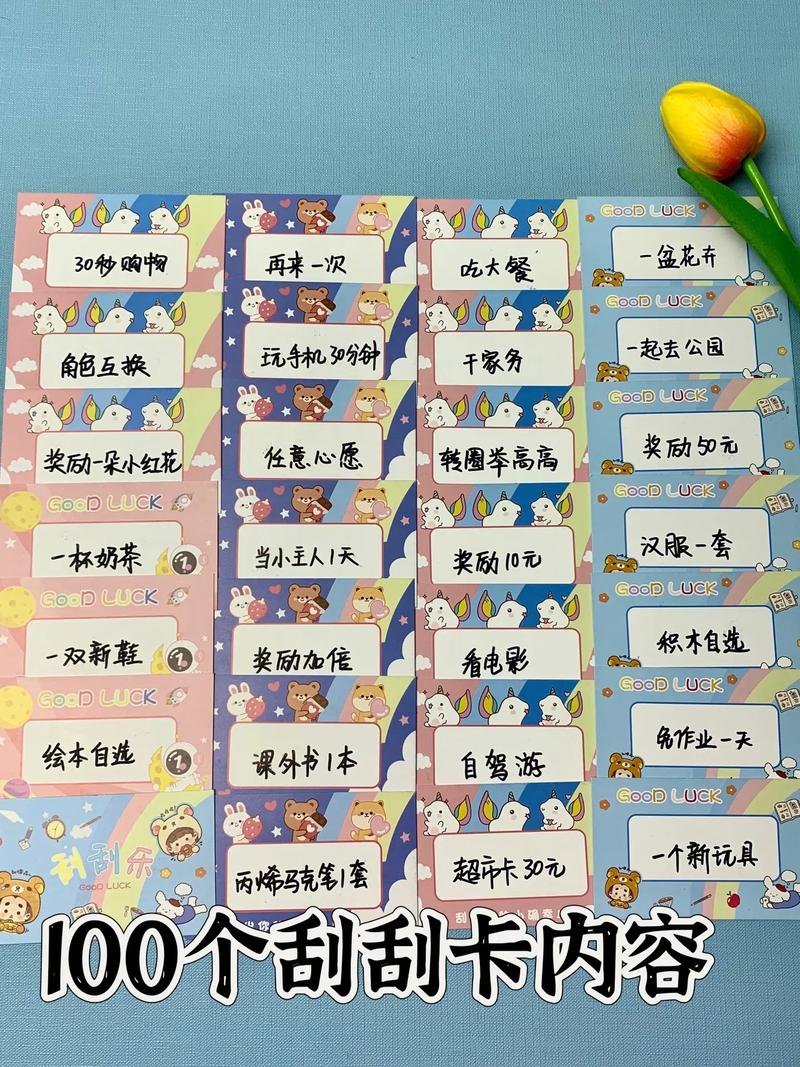 30秒购物
角色互换
奖励一朵小红花
GOOD LUCK
一杯奶茶
GOOD LUCK
一双新鞋
GOOD LUCK
绘本自选
刮刮乐
GOOD LUCK
再来一次
玩手机30分钟
任意心愿
当小主人1天
奖励加倍
课外书1本
丙烯马克笔1套
吃大餐
干家务
转圈举高高
奖励10元
看电影
自驾游
超市卡30元
GOOD LUCK
一盆花卉
GOOD LUCK
一起去公园
GOOD LUCK
奖励50元
GOOD LUCK
汉服一套
GOOD LUCK
积木自选
GOOD LUCK
免作业一天
GOOD LUCK
一个新玩具
100个刮刮卡内容